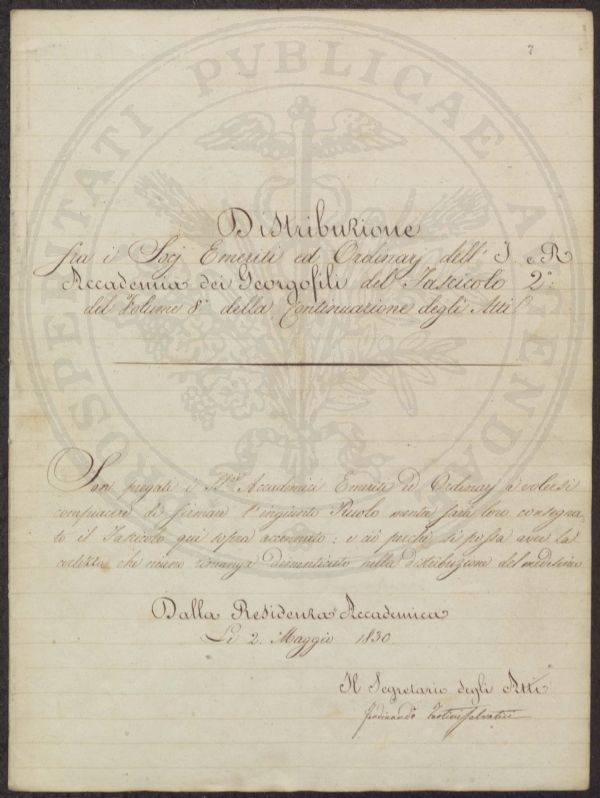 7
PROSPERITATI PVBLICAE AVGENDAE
Distribuzione
fra i Socj Emeriti ed Ordinarj dell' I e R
Accademia dei Georgofili del Fascicolo 2°:
del Volume 8° della Continuazione degli Atti
Son pregati i SS.ri Accademici Emeriti ed Ordinarj a volersi
compiacere di firmare l'ingiunto Ruolo mentre sarà loro consegna-
to il Fascicolo qui sopra accennato: e ciò perchè si possa aver la
certezza che niuno rimanga dimenticato nella distribuzione del medesimo
Dalla Residenza Accademica
Li 2. Maggio 1830
Il Segretario degli Atti
Ferdinando Tartini Salvatici